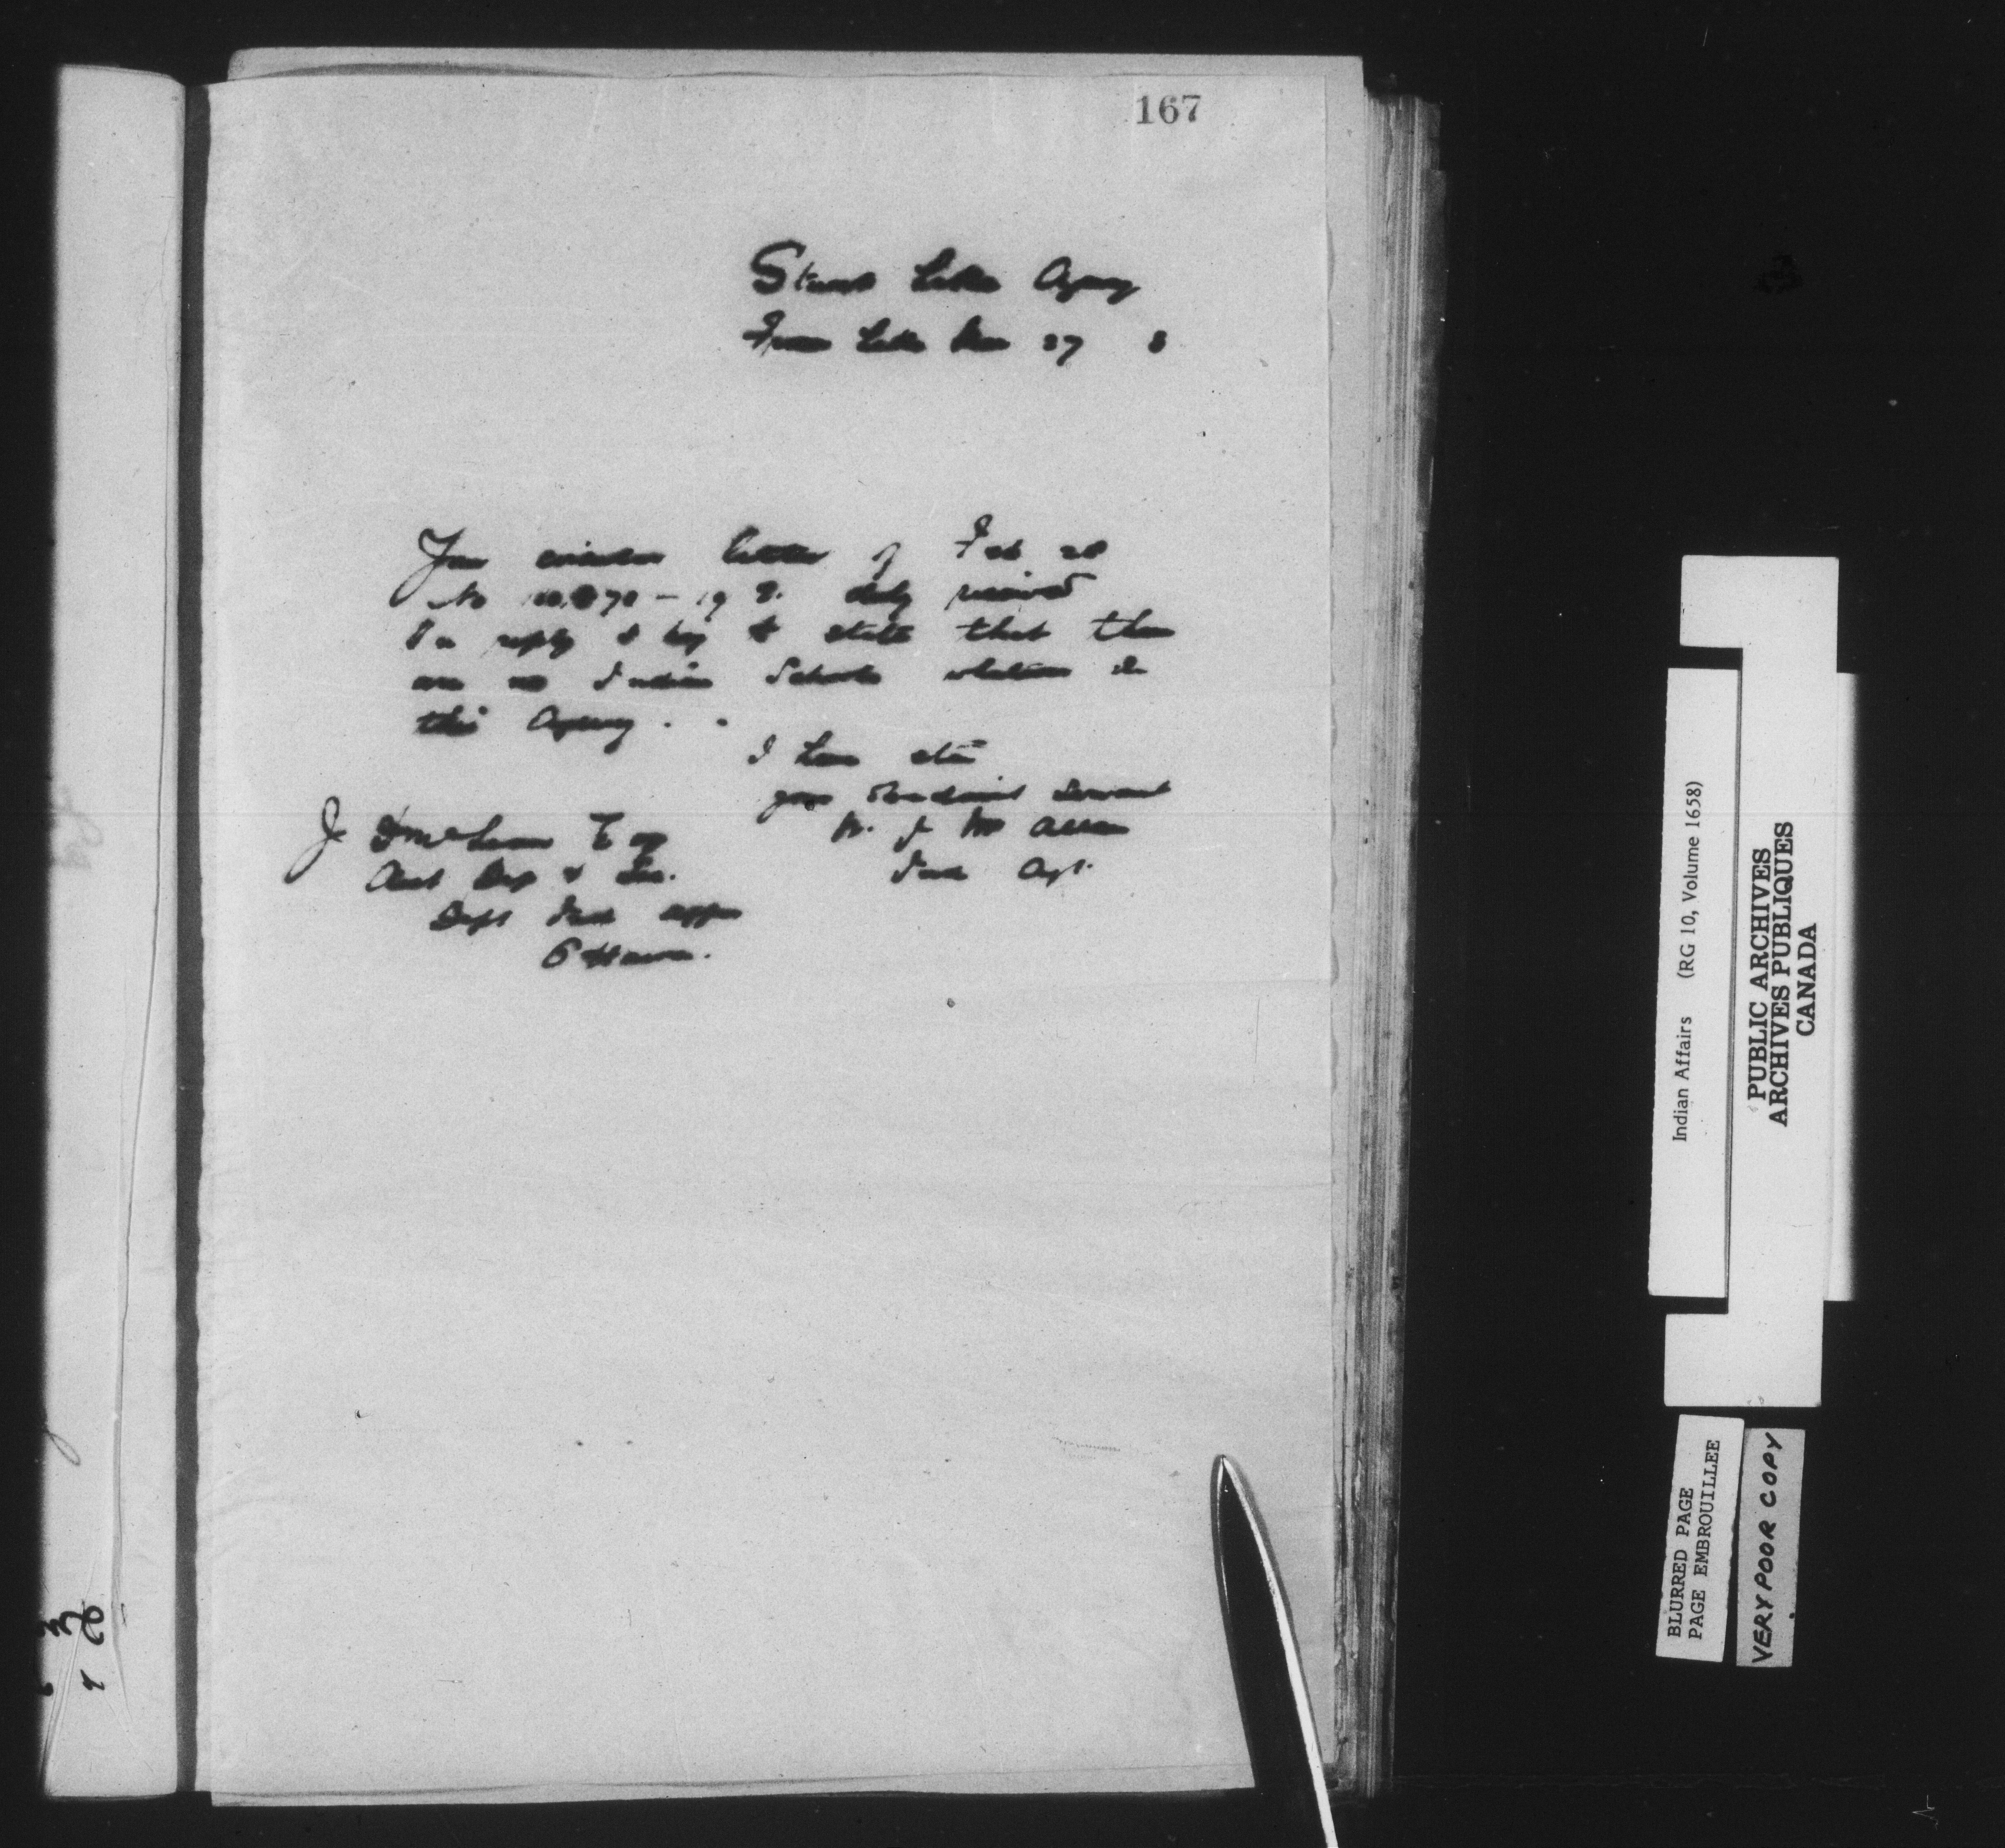 167
Stuart Lake Agency
Fraser Lake Mar 27 8
Your circular letter of Feb 28
No 19 2. duly received
In reply I beg to state that there
are no Indian Schools whatever in
this Agency.
I have etc
your obedient Servant
W. J. McAllan
Ind Agt.
J D McLean Esq
Asst Dep & Sec.
Dept Ind Affrs
Ottawa.
Indian Affairs (RG 10, Volume 1658)
PUBLIC ARCHIVES
ARCHIVES PUBLIQUES
CANADA
BLURRED PAGE
PAGE EMBROUILLEE
VERY POOR COPY